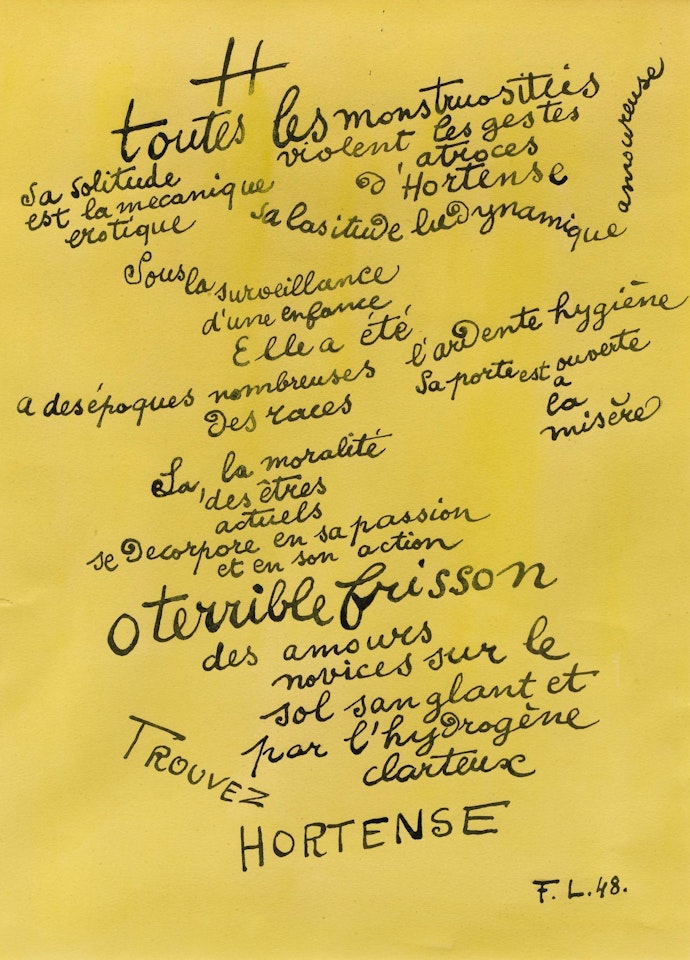 H
toutes les monstruositées
violent les gestes
atroces
d'Hortense
Sa solitude
est la mecanique
erotique
sa lasitude la dynamique
amoureuse
Sous la surveillance
d'une enfance
Elle a été
a des époques nombreuses
des races
l'ardente hygiène
Sa porte est ouverte
a
la
misère
La, la moralité
des êtres
actuels
se decorpore en sa passion
et en son action
O terrible frisson
des amours
novices sur le
sol sanglant et
par l'hydrogène
clarteux
TROUVEZ
HORTENSE
F. L. 48.